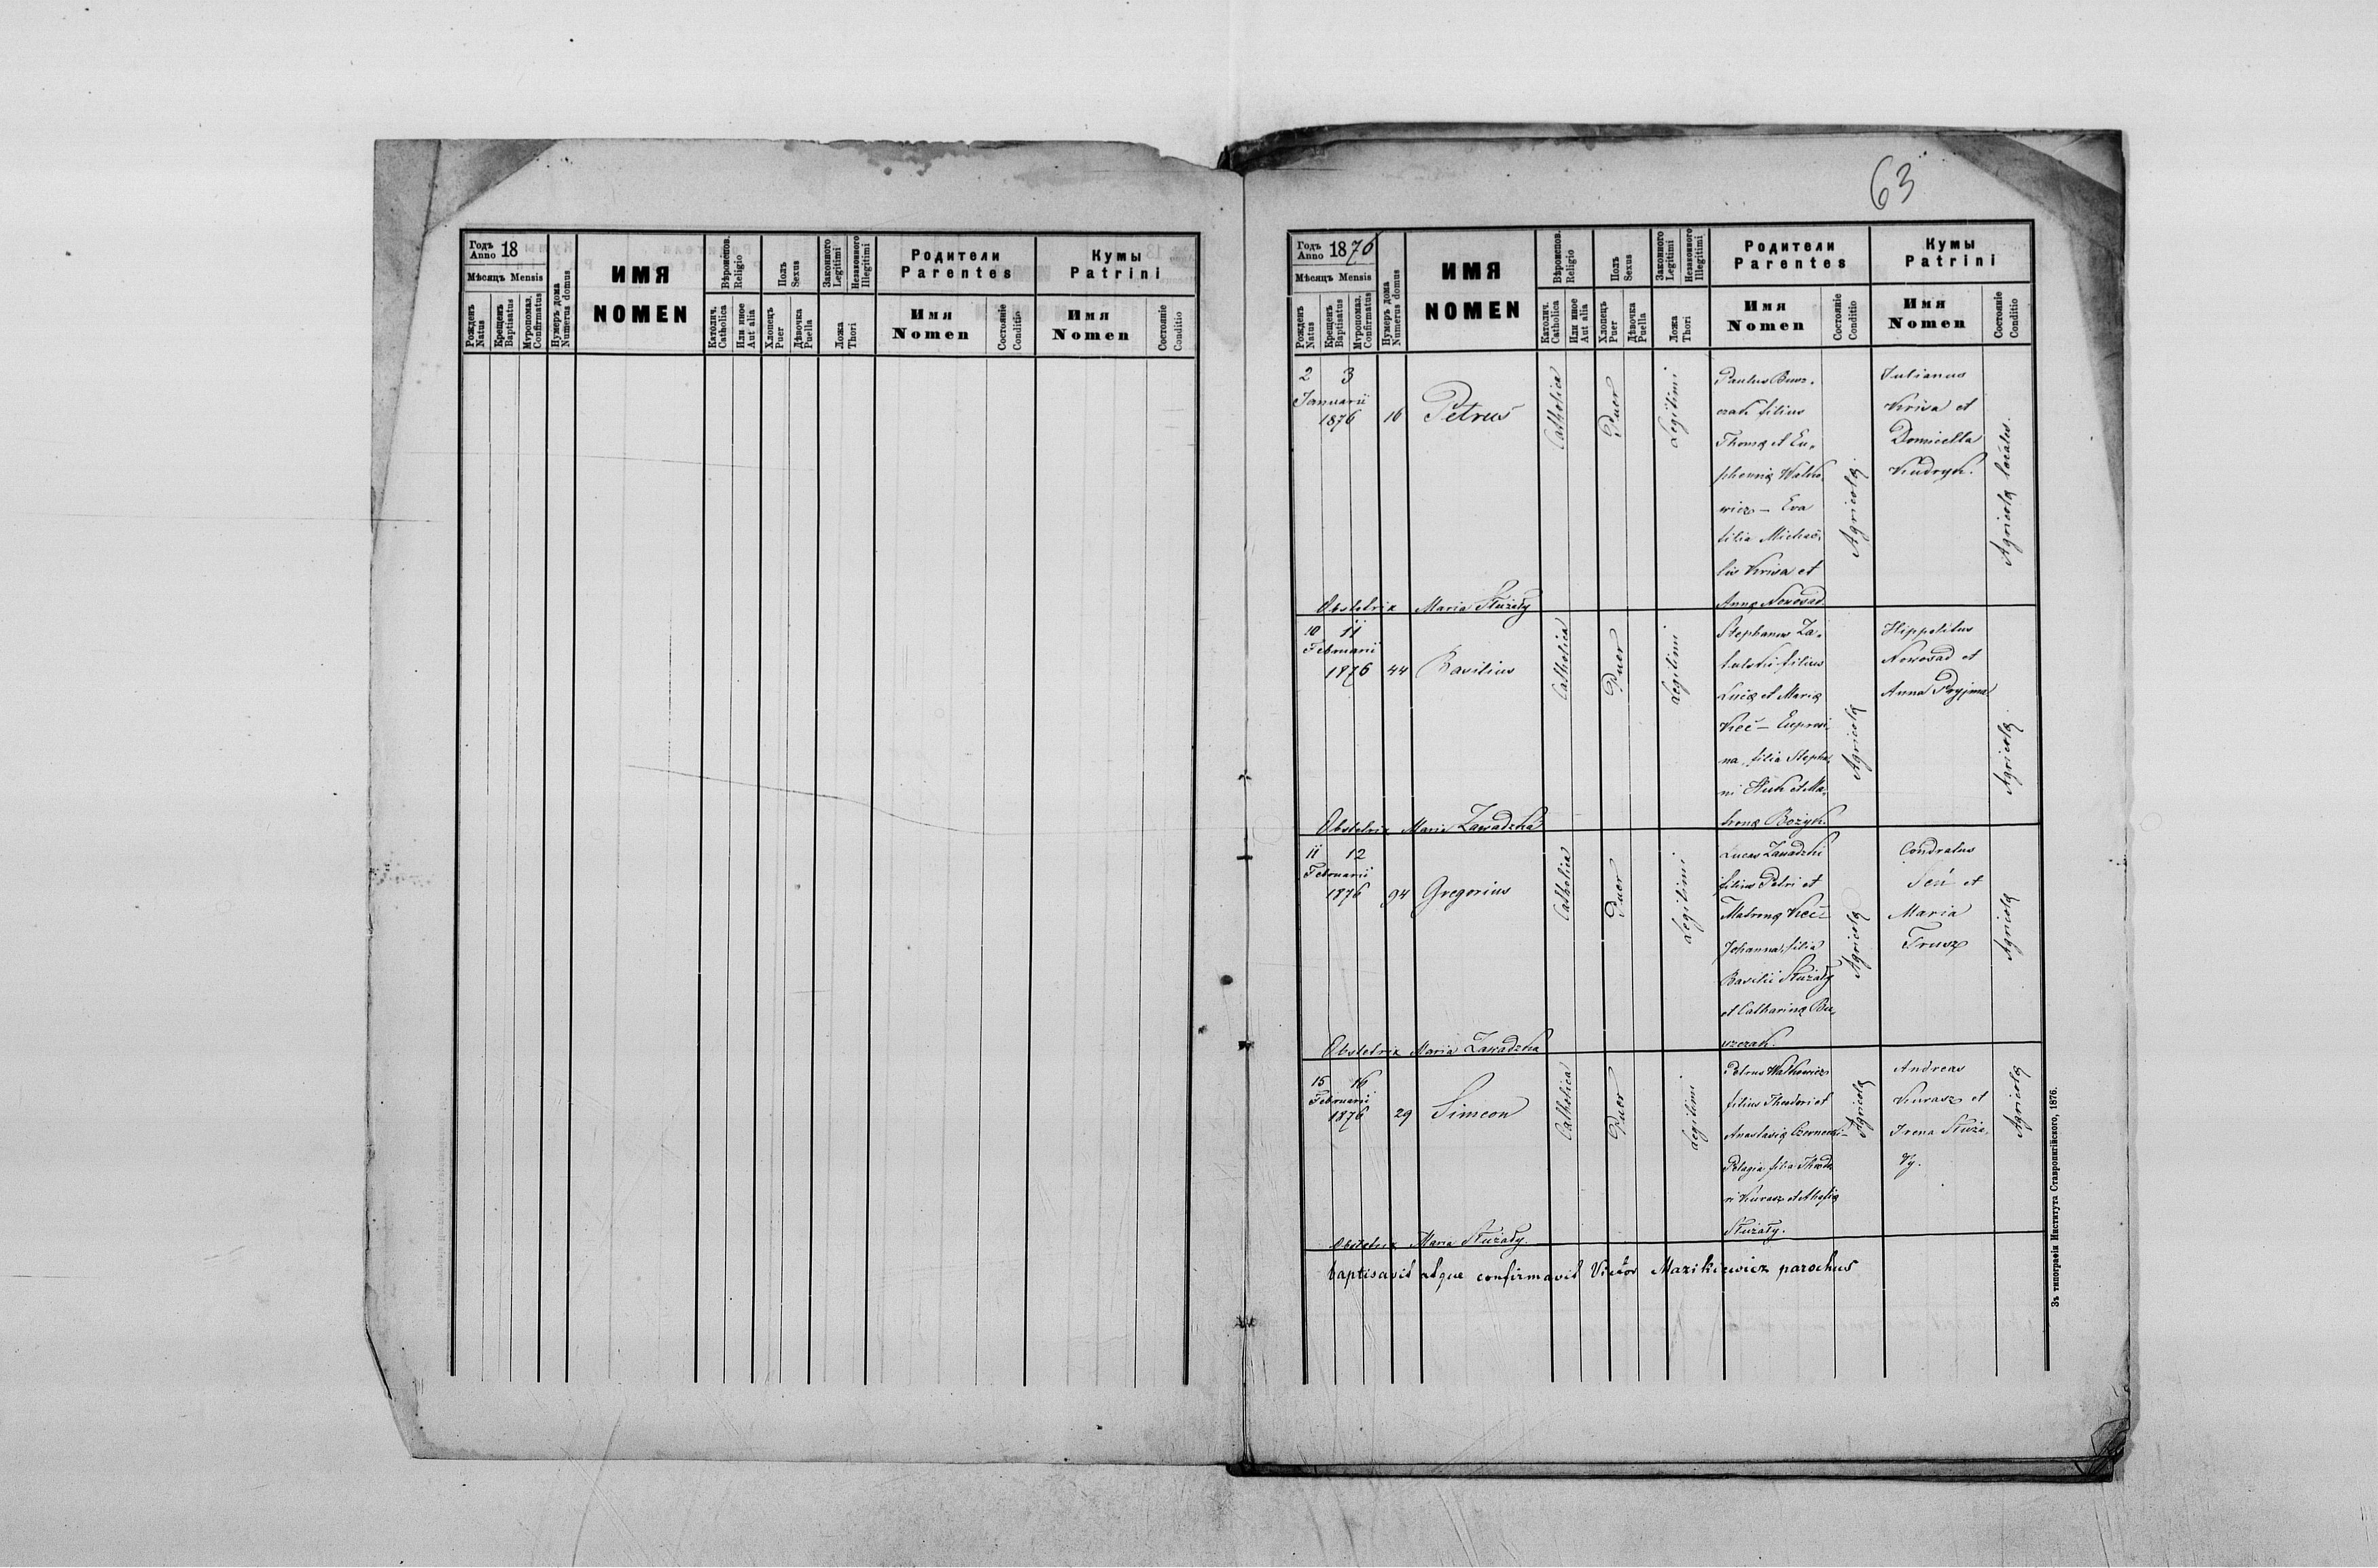 63
Годъ 18
Anno
Мѣсяцъ Mensis
Рожденъ Natus
Крещенъ Baptisatus
Муропомаз. Confirmatus
Нумеръ дома Numerus domus
ИМЯ
NOMEN
Вѣроисповѣд. Religio
Католич. Catholica
Или иное Aut alia
Полъ Sexus
Хлопецъ Puer
Дѣвочка Puella
Законного Legitimi
Незаконного Illegitimi
Ложа Thori
Родители
Parentes
Имя
Nomen
Состояніе Conditio
Кумы
Patrini
Имя
Nomen
Состояніе Conditio
Годъ 1876
Anno
Мѣсяцъ Mensis
Рожденъ Natus
Крещенъ Baptisatus
Муропомаз. Confirmatus
Нумеръ дома Numerus domus
ИМЯ
NOMEN
Вѣроисповѣд. Religio
Католич. Catholica
Или иное Aut alia
Полъ Sexus
Хлопецъ Puer
Дѣвочка Puella
Законного Legitimi
Незаконного Illegitimi
Ложа Thori
Родители
Parentes
Имя
Nomen
Состояніе Conditio
Кумы
Patrini
Имя
Nomen
Состояніе Conditio
2 3
Januarii
1876
16
Petrus
Catholica
Puer
Legitimi
Paulus Busz-
czak filius
Thomę et Eu-
phemię Walko-
wicz – Eva
filia Michaë-
lis Krisa et
Annę Nowosad
Agricolę.
Julianus
Krisa et
Domicella
Kudryk.
Agricolę locales.
Obstetrix Maria Służały
10 11
Februarii
1876
44
Basilius
Catholica
Puer
Legitimi
Stephanus Za-
filius
Lucę et Marię
Kieć – Euprosi-
na filia Stepha-
ni et Ma-
tronę Bożyk.
Agricolę
Hippolitus
Nowosad et
Anna Pryjma
Agricolę.
Obstetrix Maria Zawadzka
11 12
Februarii
1876
94
Gregorius
Catholica
Puer
Legitimi
Lucas Zawadzki
filius Petri et
Matronę Kieć –
Johanna, filia
Basilii Służały
et Catharinę Bu-
szczak.
Agricolę
Condratus
et
Maria
Trusz
Agricolę
Obstetrix Maria Zawadzka
15 16
Februarii
1876
29
Simeon
Catholica
Puer
Legitimi
Petrus Walkowicz
filius Theodori et
Anastasię
Pelagia filia Theodo-
ri Kurasz et
Służały.
Agricolę
Andreas
Kurasz et
Irena Służa-
ły.
Agricolę
Obstetrix Maria Służały.
baptisavit atque confirmavit Victor Mazikiewicz parochus
Зъ типографіи Института Ставропигійского, 1876.